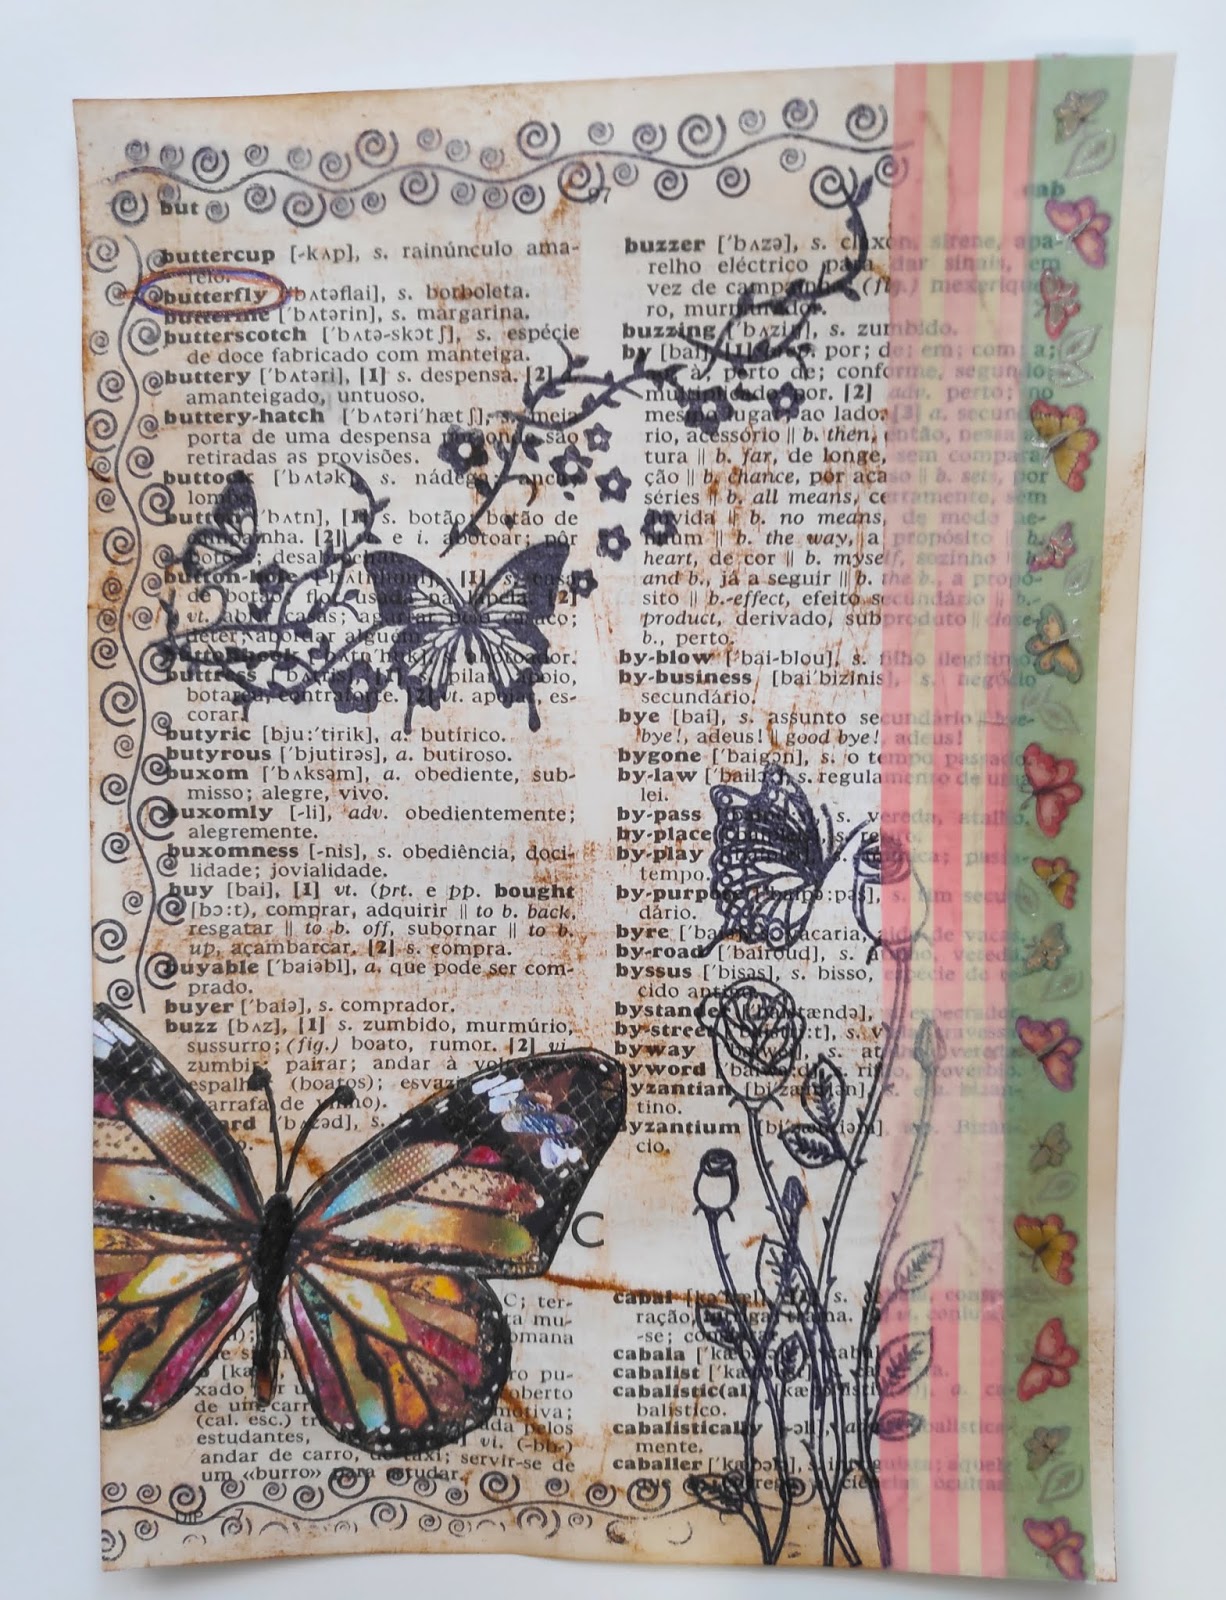 but
97
cab
buttercup [-kʌp], s. rainúnculo ama-
relo.
butterfly ['bʌtəflai], s. borboleta.
butterine ['bʌtərin], s. margarina.
butterscotch ['bʌtə-skɔtʃ], s. espécie
de doce fabricado com manteiga.
buttery ['bʌtəri], [1] s. despensa. [2] a.
amanteigado, untuoso.
buttery-hatch ['bʌtəri'hætʃ], s. meia
porta de uma despensa por onde são
retiradas as provisões.
buttock ['bʌtək], s. nádega; anca;
lombo.
button ['bʌtn], [1] s. botão; botão de
campainha. [2] t. e i. abotoar; pôr
botões; desabrochar.
button-hole ['bʌtnhoul], [1] s. casa
de botão; flor usada na lapela. [2]
vt. abrir casas; agarrar pelo casaco;
deter; abordar alguém.
button-hook ['bʌtn'huk], s. abotoador.
buttress ['bʌtris], [1] s. pilar, apoio,
botaréu, contraforte. [2] vt. apoiar, es-
corar.
butyric [bju:'tirik], a. butírico.
butyrous ['bjutirəs], a. butiroso.
buxom ['bʌksəm], a. obediente, sub-
misso; alegre, vivo.
buxomly [-li], adv. obedientemente;
alegremente.
buxomness [-nis], s. obediência, doci-
lidade; jovialidade.
buy [bai], [1] vt. (prt. e pp. bought
[bɔ:t), comprar, adquirir || to b. back,
resgatar || to b. off, subornar || to b.
up, açambarcar. [2] s. compra.
buyable ['baiəbl], a. que pode ser com-
prado.
buyer ['baiə], s. comprador.
buzz [bʌz], [1] s. zumbido, murmúrio,
sussurro; (fig.) boato, rumor. [2] vi.
zumbir; pairar; andar à volta
espalhar (boatos); esvaziar
garrafa de vinho).
['bʌzəd], s.
C
C; ter-
mu-
romana
[kæ
pu-
xado por u
de um carr
(cal. esc.) tr
pelos
estudantes,
vi. (-bb-)
andar de carro, de taxi; servir-se de
um «burro» para estudar.
DIP 7
buzzer ['bʌzə], s. claxon, sirene, apa-
relho eléctrico para dar sinais, em
vez de campainha; (fig.) mexeriquei-
ro, murmurador.
buzzing ['bʌziŋ], s. zumbido.
by [bai], [1] prep. por; de; em; com; a;
à, perto de; conforme, segundo;
multiplicado por. [2] adv. perto; no
mesmo lugar; ao lado. [3] a. secundá-
rio, acessório || b. then, então, nessa al-
tura || b. far, de longe, sem compara-
ção || b. chance, por acaso || b. sets, por
séries || b. all means, certamente, sem
dúvida || b. no means, de modo ne-
nhum || b. the way, a propósito || b.
heart, de cor || b. myself, sozinho || b.
and b., já a seguir || b. the b., a propó-
sito || b.-effect, efeito secundário || b.-
product, derivado, subproduto || close
b., perto.
by-blow ['bai-blou], s. filho ilegítimo.
by-business [bai'bizinis], s. negócio
secundário.
bye [bai], s. assunto secundário || bye-
bye!, adeus! || good bye!, adeus!
bygone ['baigɔn], s. o tempo passado.
by-law ['bailɔ:], s. regulamento de uma
lei.
by-pass ['baipɑ:s], s. vereda, atalho.
by-place ['baipleis], s. retiro.
by-play ['baiplei], s.
tempo.
by-purpose ['baipə:pəs], s. fim secun-
dário.
byre ['baiə], s. vacaria, aido de vacas.
by-road ['bairoud], s. atalho, vereda.
byssus ['bisəs], s. bisso, espécie de te-
cido antigo.
bystander ['baistændə], s. espectador.
by-street ['baistri:t], s. travessa.
byway ['baiwei], s. atalho, vereda.
byword ['baiwə:d], s. rifão, provérbio.
byzantian [bi'zænʃiən], s. e a. bizan-
tino.
Byzantium [bi'zæntiəm], Bizân-
cio.
cabal [kə'bæl], s.
ração, intriga, trama.
-se; conspirar.
cabala [kə'bɑ:lə], s. cabala.
cabalist ['kæbəlist], s. cabalista.
cabalistic(al) [kæbə'listik(əl)], a. ca-
balístico.
cabalistically [-əli], adv. cabalistica-
mente.
caballer [kə'bælə], s. intriguista; aquele
que se entrega a ciências ocultas.